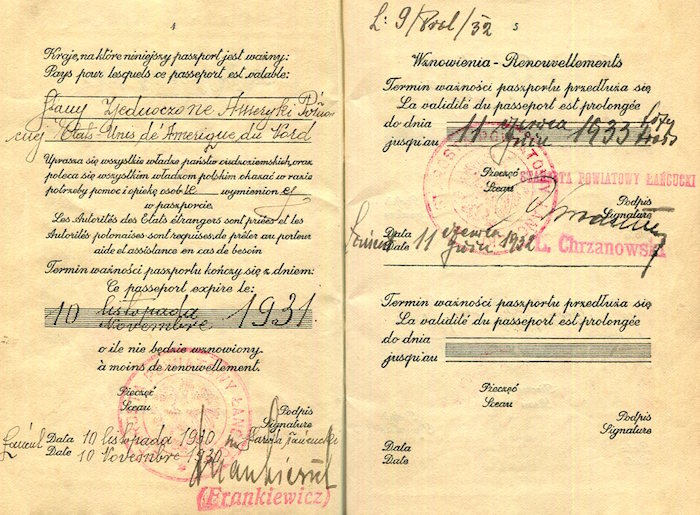 4
Kraje, na które niniejszy paszport jest ważny:
Pays pour lesquels ce passeport est valable:
Stany Zjednoczone Ameryki Półno-
cnej Etats-Unis de Amerique du Nord
Uprasza się wszystkie władze państw cudzoziemskich, oraz
poleca się wszystkim władzom polskim okazać w razie
potrzeby pomoc i opiekę osobie wymienionej
w paszporcie.
Les Autorités des Etats étrangers sont priées et les
Autorités polonaises sont requises, de prêter au porteur
aide et assistance en cas de besoin
Termin ważności paszportu kończy się z dniem:
Ce passeport expire le:
10 listopada 1931
Novembre
o ile nie będzie wznowiony
à moins de renouvellement.
Pieczęć
Sceau
Podpis
Signature
Łańcut Data 10 listopada 1930
Date 10 Novembre 1930
(Frankiewicz)
L: 9/Prol/32
5
Wznowienia - Renouvellements
Termin ważności paszportu przedłuża się
La validité du passeport est prolongée
do dnia 11 czerwca 1933
jusqu'au Juin
Pieczęć
Sceau
STAROSTA POWIATOWY ŁAŃCUCKI
Podpis
Signature
Łańcut Data 11 czerwca 1932
Date Juin
L. Chrzanowski
Termin ważności paszportu przedłuża się
La validité du passeport est prolongée
do dnia
jusqu'au
Pieczęć
Sceau
Podpis
Signature
Data
Date